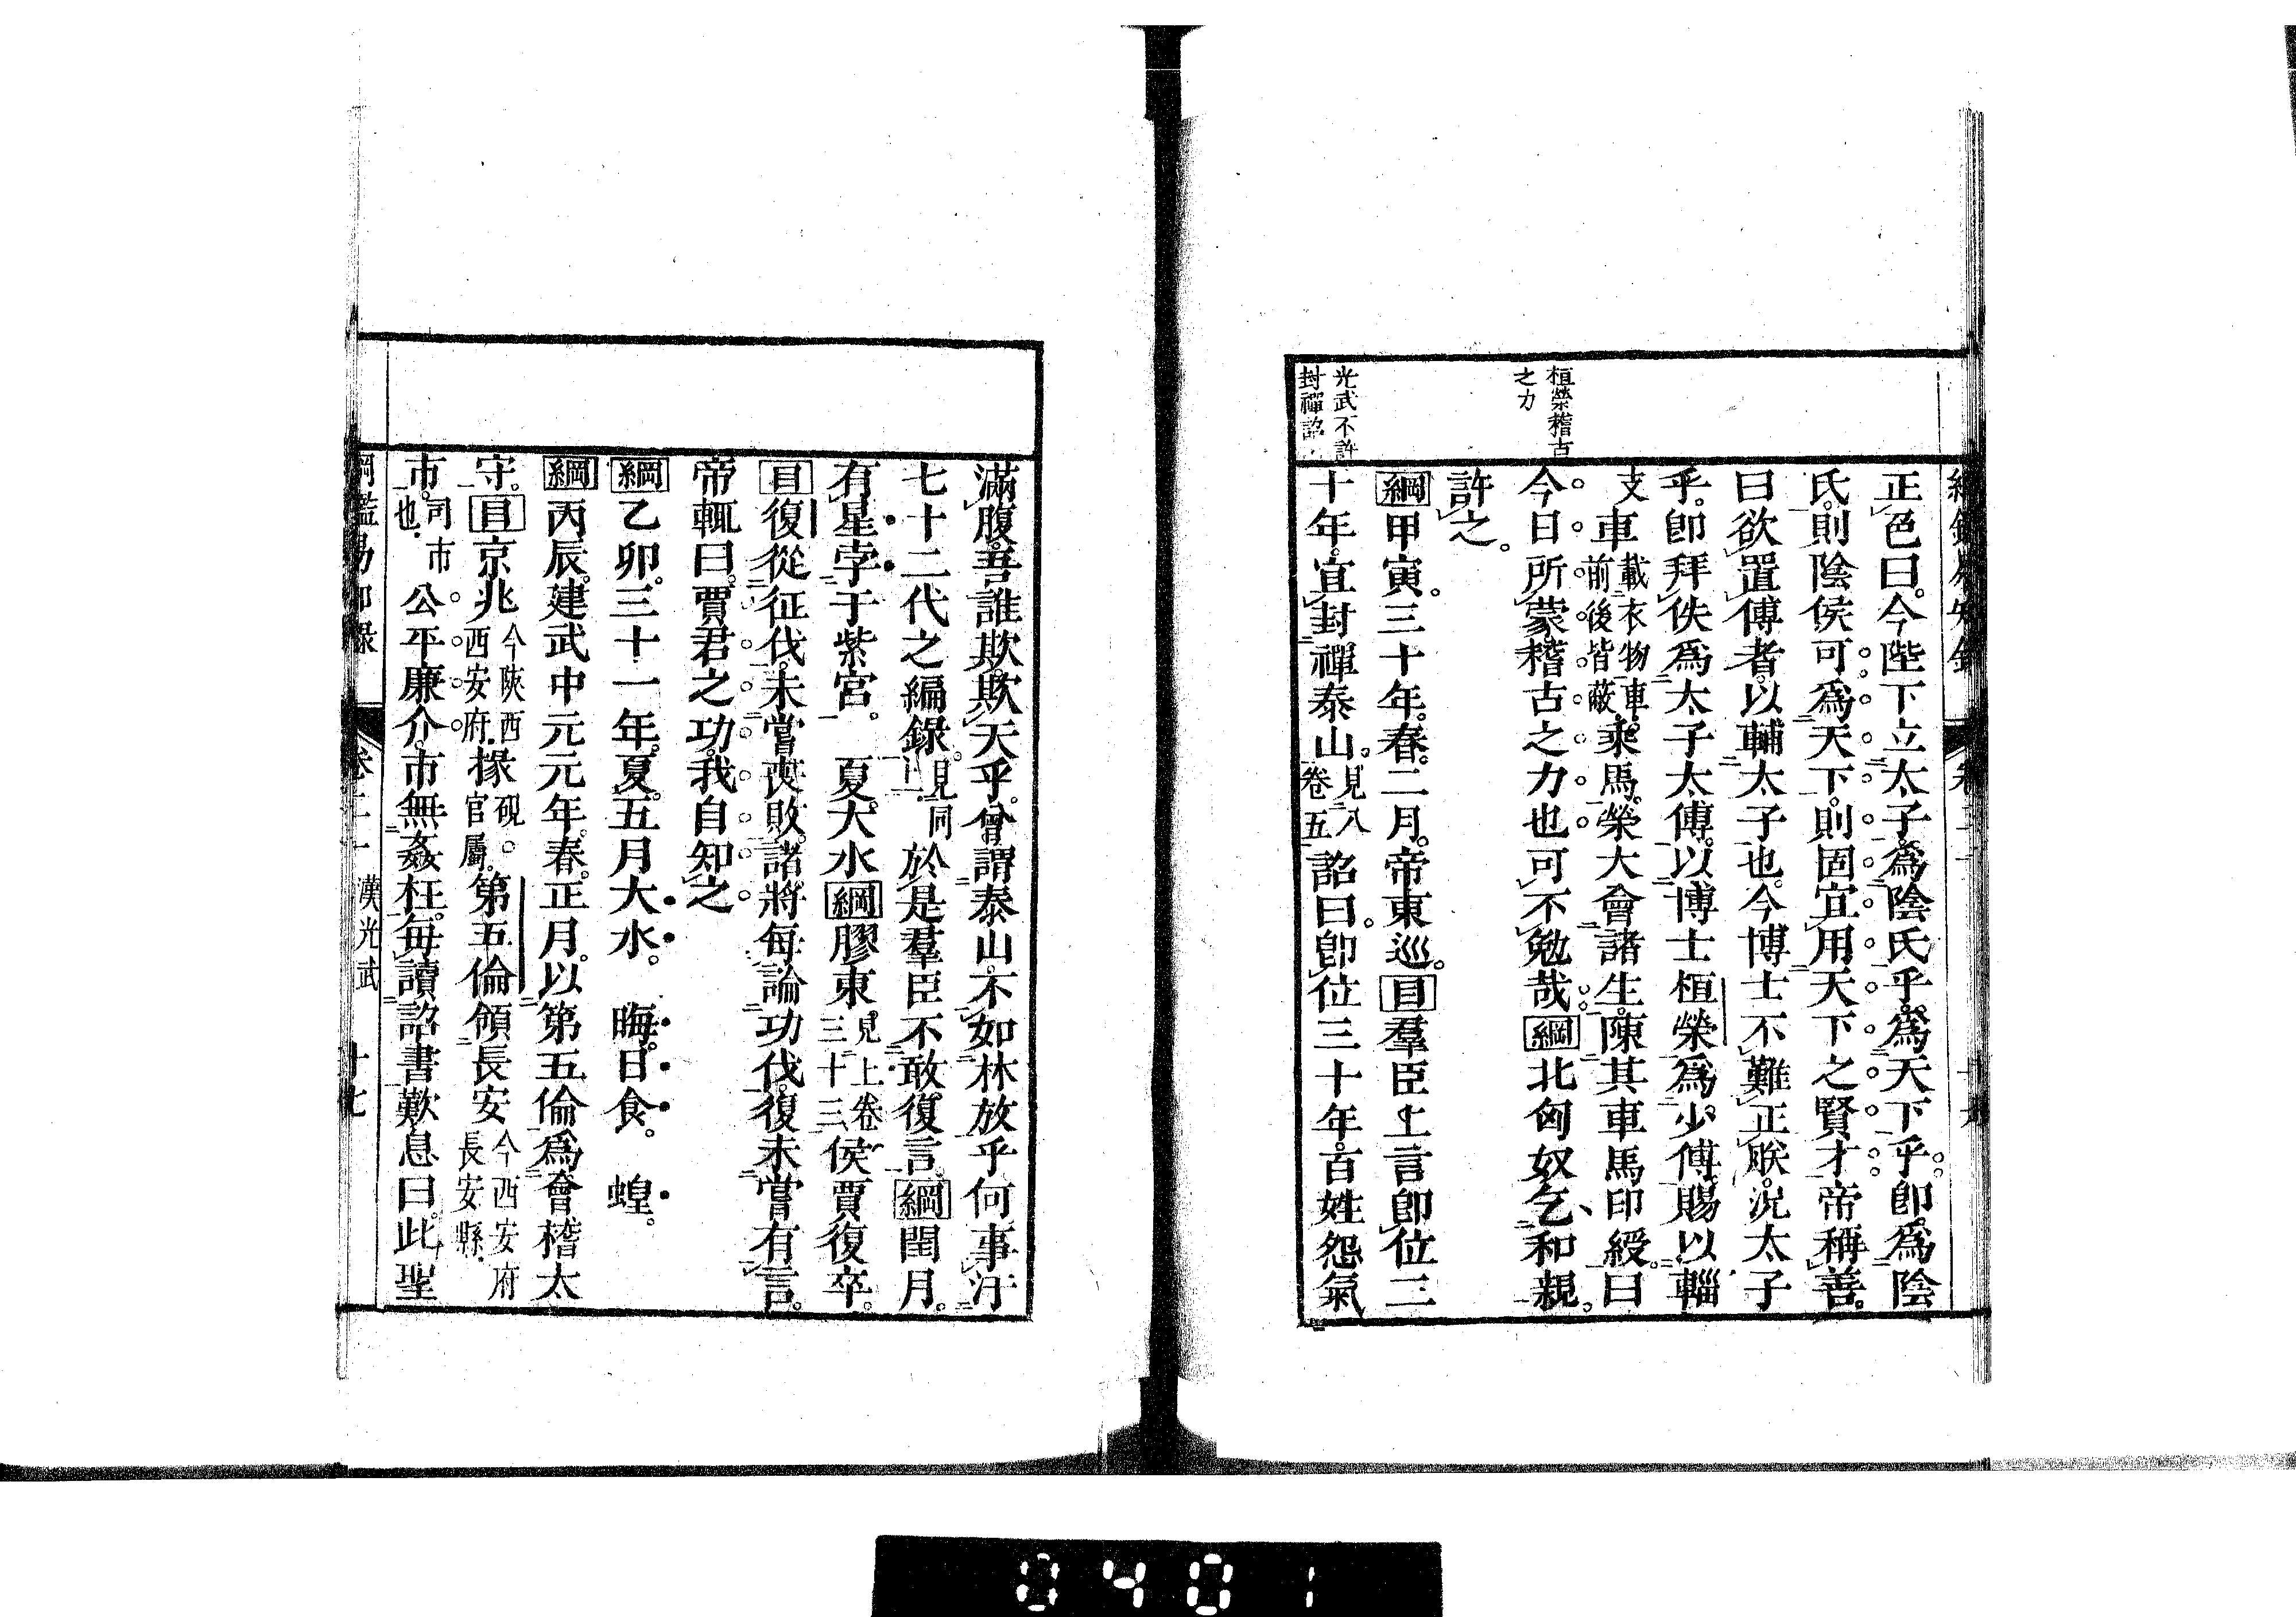 正色曰。今陛下立太子。爲陰氏乎。爲天下乎。卽爲陰
氏。則陰侯可。爲天下。則固宜用天下之賢才。帝稱善。
曰欲置傅者。以輔太子也。今博士不難正朕。況太子
乎。卽拜佚爲太子太傅。以博士桓榮爲少傅。賜以輜
支車載衣物車。前後皆蔽乘馬。榮大會諸生。陳其車馬印綬曰
桓榮稽古
之力
今日所蒙。稽古之力也。可不勉哉。綱北匈奴乞和親。
許之。
綱甲寅。三十年。春。二月。帝東巡。目羣臣上言。卽位三
光武不許
封禪詔
十年。宜封禪泰山。見八卷五詔曰。卽位三十年。百姓怨氣
滿腹。吾誰欺。欺天乎。曾謂泰山。不如林放乎。何事汙
七十二代之編錄。見同上於是羣臣不敢復言。綱閏月。
有星孛于紫宮。 夏。大水綱膠東見上卷三十三侯賈復卒。
目復從征伐。未嘗喪敗。諸將每論功伐。復未嘗有言。
帝輒曰。賈君之功。我自知之
綱乙卯。三十一年。夏。五月大水。 晦。日食。 蝗。
綱丙辰。建武中元元年。春。正月。以第五倫爲會稽太
守。目京兆今陝西西安府掾硯。官屬第五倫領長安今西安府長安縣
市。司市也 公平廉介。市無姦枉。每讀詔書。歎息曰。此聖
綱鑑易知錄 漢光武 十七
0401